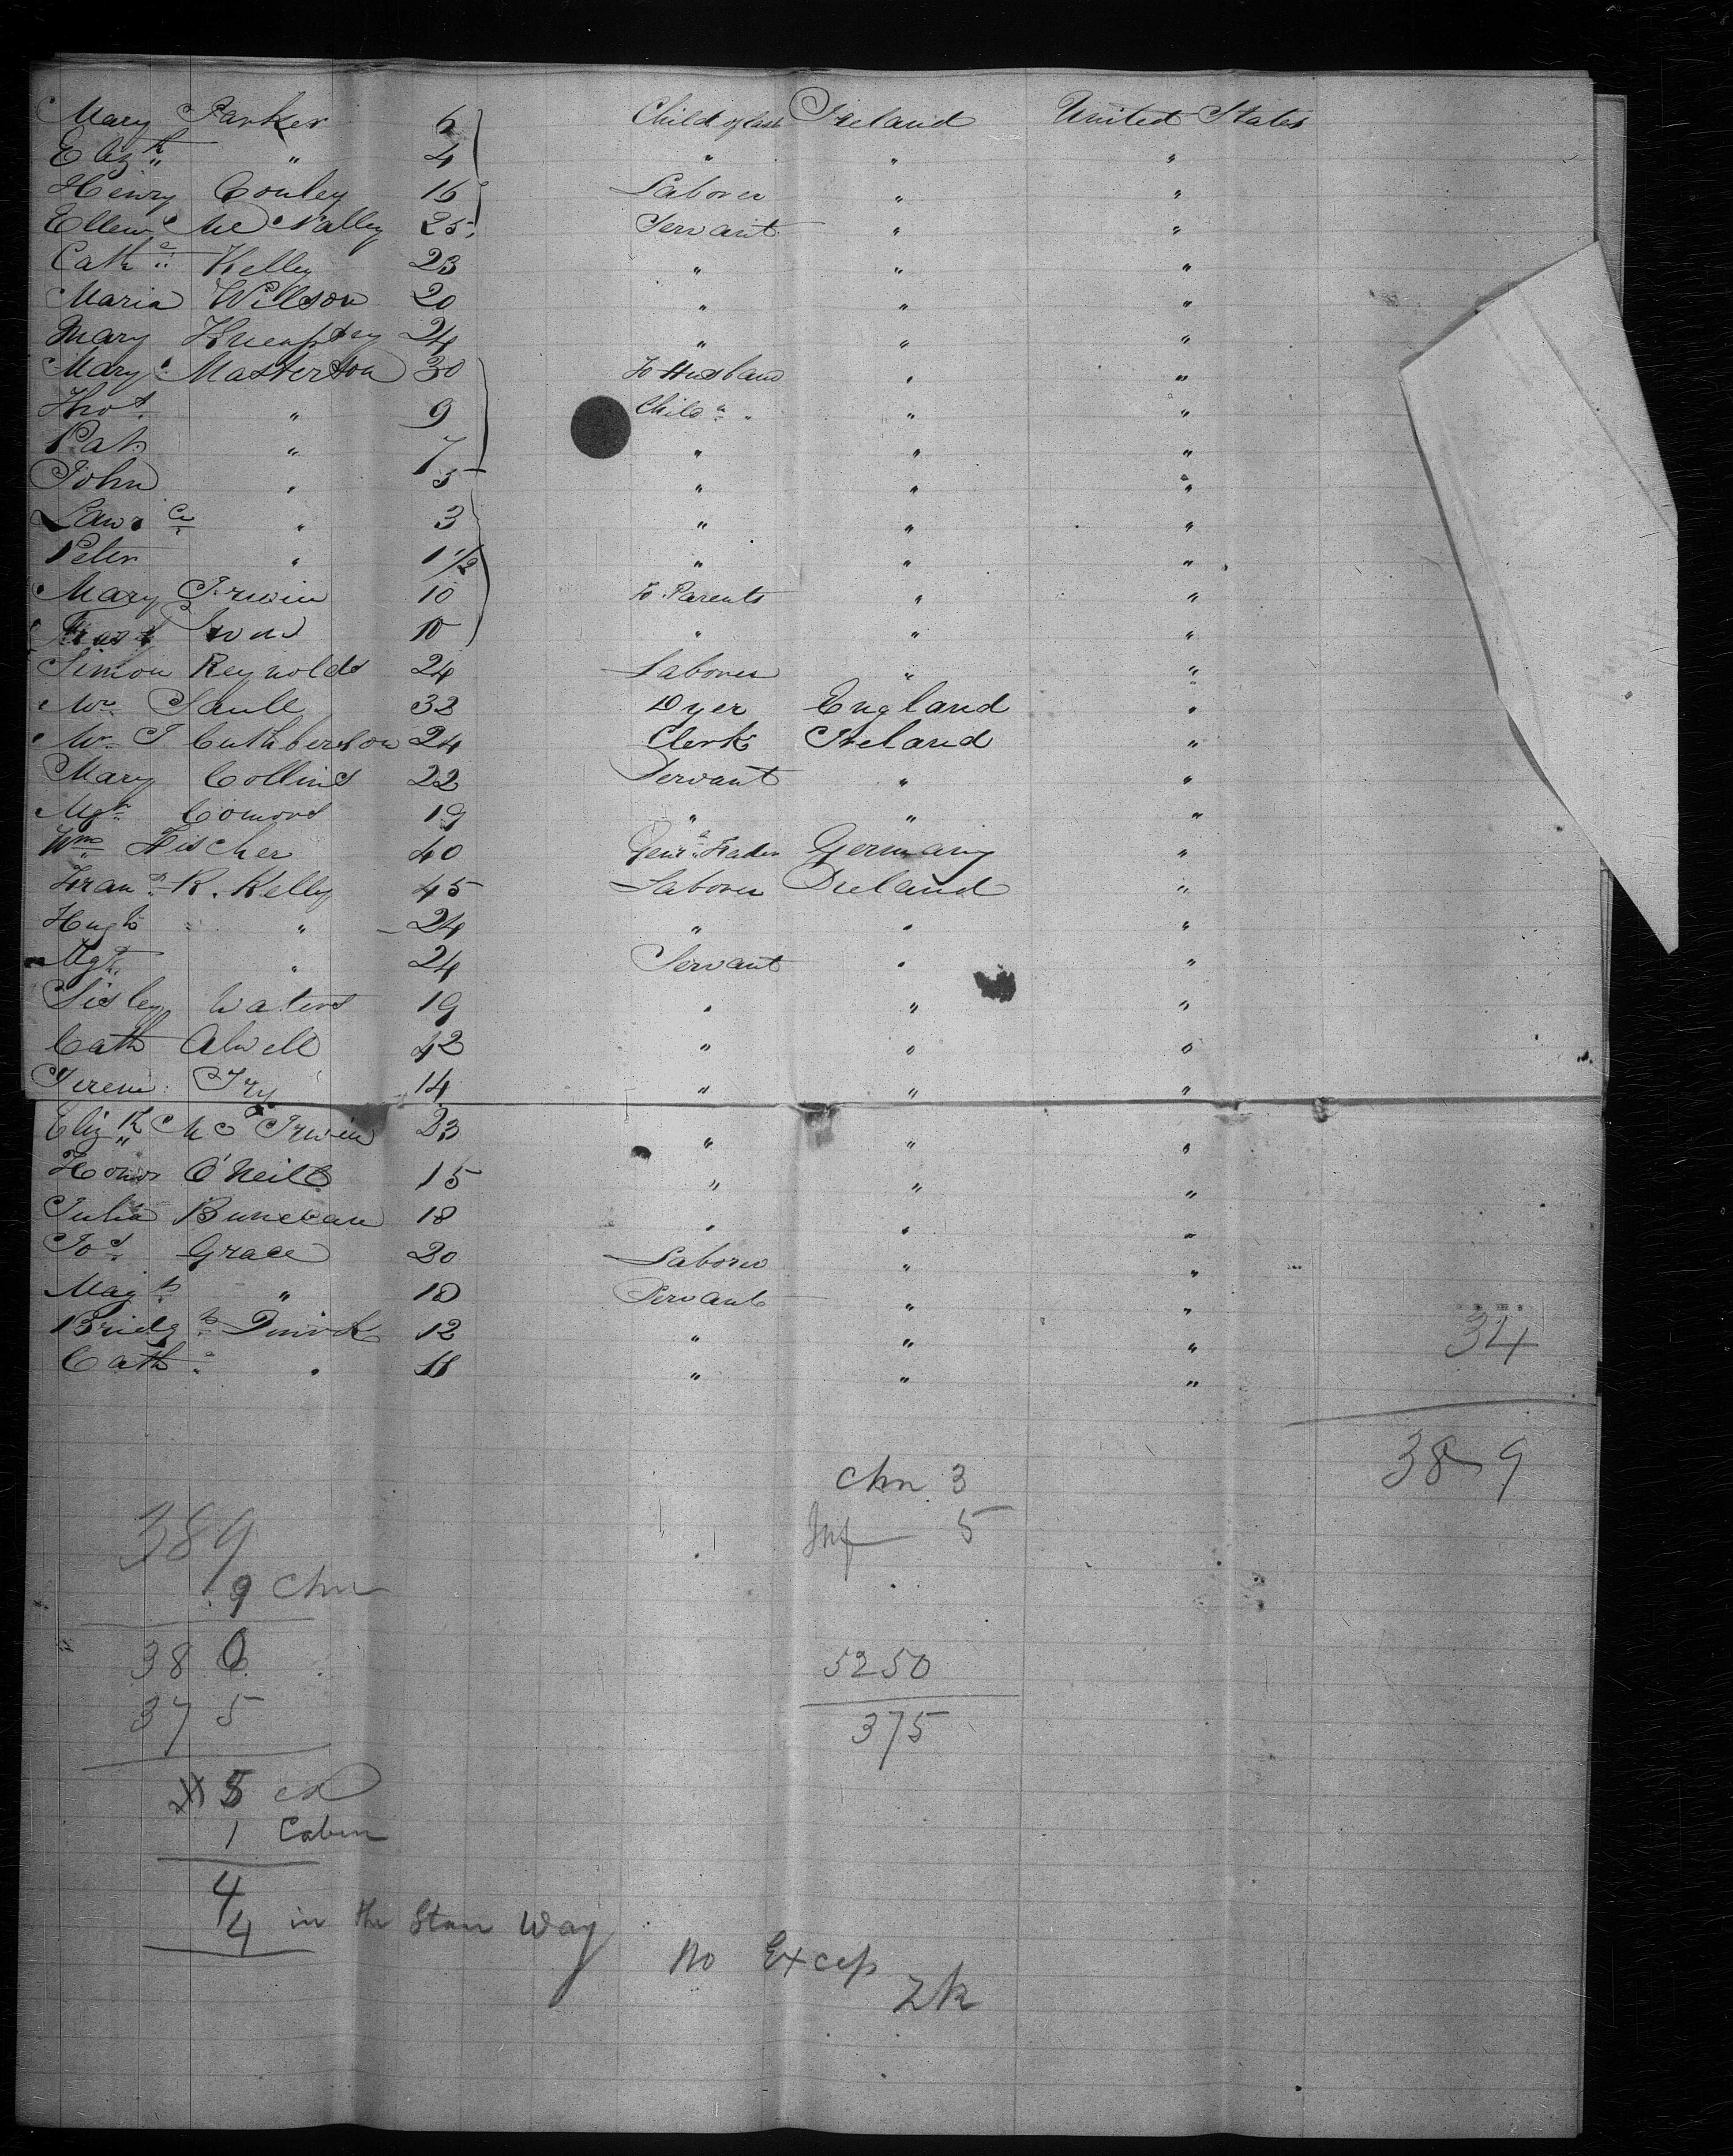 Mary Parker 6 Child of last Ireland United States
Eliz.th " 4 " " "
Henry Conley 16 Laborer " "
Ellen Mc Nally 25 Servant " "
Cath.e Kelley 23 " " "
Maria Willson 20 " " "
Mary 24 " " "
Mary Masterton 30 To Husband " "
Thos " 9 Child.n " "
Pat. " 7 " " "
John " 5 " " "
Lawr.ce " 3 " " "
Peter " 1 1/2 " " "
Mary Irwin 10 To Parents " "
10 " " "
Simon Reynolds 24 Laborer " "
Mr. Saull 32 Dyer England "
Mr. J Cuthbertson 24 Clerk Ireland "
Mary Collins 22 Servant " "
Mgt. Comors 19 " " "
Wm Fischer 40 Genr.l Trader Germany "
Fran.s R. Kelly 45 Laborer Ireland "
Hugh " 24 " " "
Mgt. " 24 Servant " "
Sisley Waters 19 " " "
Cath Alwell 42 " " "
Jerem: Fry 14 " " "
Eliz.th Mc Irwin 23 " " "
Honor O'Neill 15 " " "
Julia Bunecan 18 " " "
Jos. Grace 20 Laborer " "
Mag.t " 18 Servant " "
Bridg.t 12 " " "
Cath.e " 11 " " "
34
389
Chn 3
Inf 5
389
9 Chn
380
375
5250
375
5
1 Cabin
4
4 in the Stair Way
No Excep